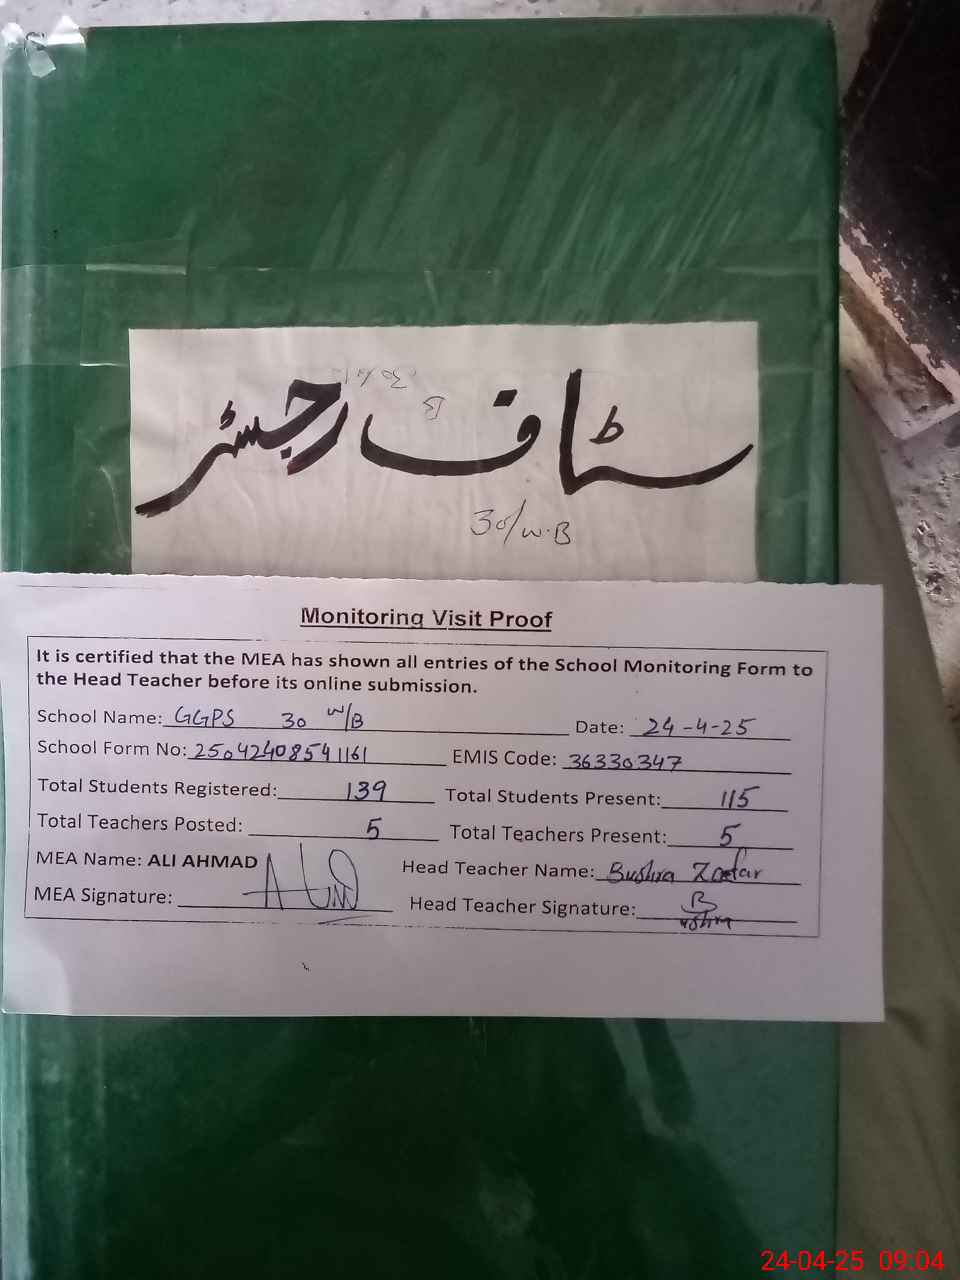 سٹاف رجسٹر
30/W.B
Monitoring Visit Proof
It is certified that the MEA has shown all entries of the School Monitoring Form to
the Head Teacher before its online submission.
School Name: GGPS 30 W/B Date: 24-4-25
School Form No: 25042408541161 EMIS Code: 36330347
Total Students Registered: 139 Total Students Present: 115
Total Teachers Posted: 5 Total Teachers Present: 5
MEA Name: ALI AHMAD Head Teacher Name: Bushra Zafar
MEA Signature: Head Teacher Signature: Bushra
24-04-25 09:04